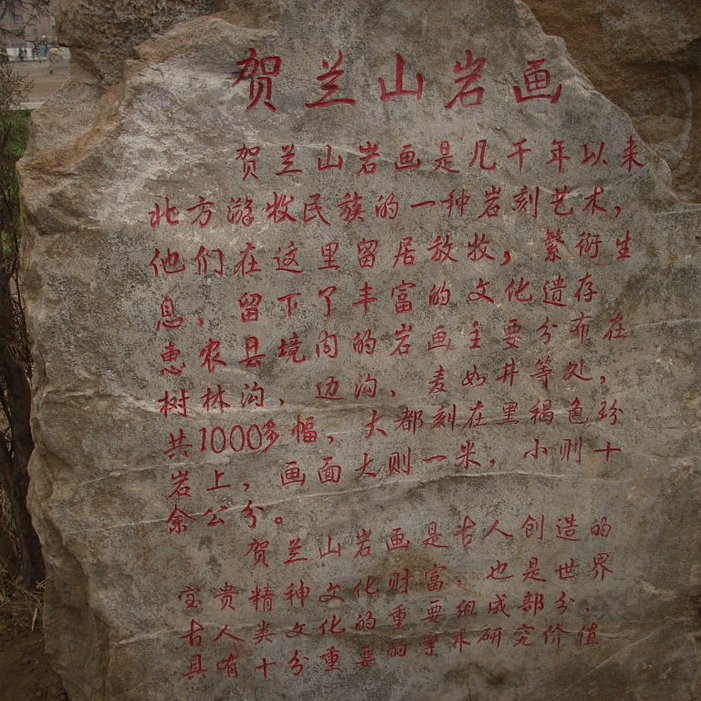 贺兰山岩画
贺兰山岩画是几千年以来
北方游牧民族的一种岩刻艺术，
他们在这里留居放牧，繁衍生
息，留下了丰富的文化遗存
惠农县境内的岩画主要分布在
树林沟，边沟，麦如井等处，
共1000多幅，大都刻在黑褐色砂
岩上，画面大则一米，小则十
余公分。
贺兰山岩画是古人创造的
宝贵精神文化财富 也是世界
古人类文化的重要组成部分．
具有十分重要的学术研究价值